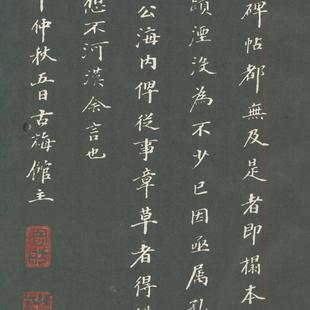 碑帖都無及是者即搨本
蹟湮没為不少已因亟属孔
公海内俾從事章草者得
您不河漢余言也
仲秋五日古海館主